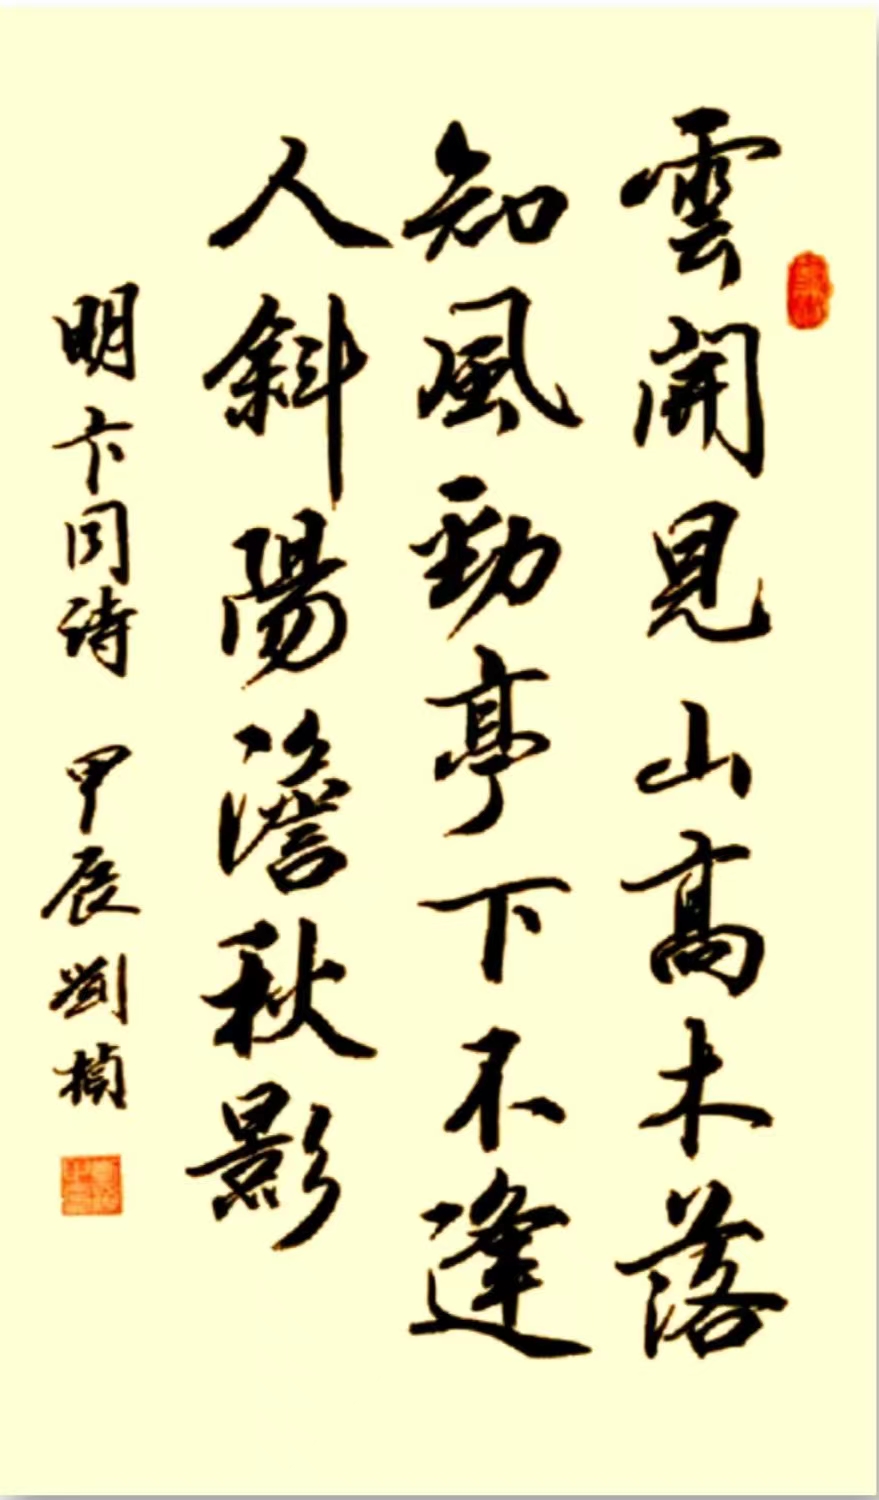 雲開見山高木落
知風勁亭下不逢
人斜陽澹秋影
明卞同詩 甲辰劉楨